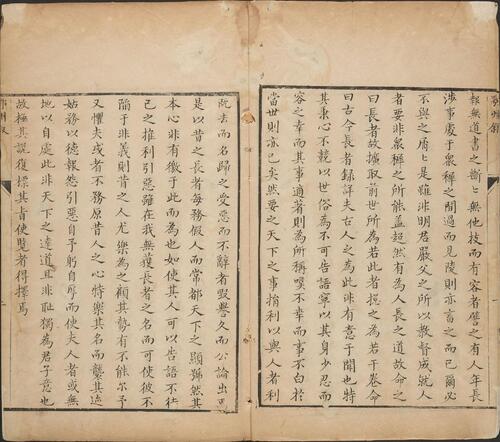 報無道書之斷〻無他技而有容者譬之有人年長
涉事處于眾稺之間過而見陵則亦畜之而已爾必
不與之屑〻是雖非明君嚴父之所以教督成就人
者要非眾稺之所能盖超然有為人長之道故命之
曰長者故攟取前世所為若此者揔之為若干卷命
曰古今長者録詳夫古人之為此非有意于聞也特
其秉心不競以世俗為不可告語寧以其身少忍而
容之幸而其事適著則為所稱嘆不幸而事不白於
當世則亦已矣然要之天下之事捐利以與人者利
既去而名歸之受惡而不辭者毀譽久而公論出焉
是以昔之長者每務假人而常都天下之顯號然其
本心非有徼于此而為也如使其人可以告語不忤
己之推利引惡雖在我無獲長者之名而可使彼不
陥于非義則昔之人尤樂為之顧其勢有不能尔予
又懼夫或者不務原昔人之心特樂其名而襲其迹
姑務以德報怨引惡自予躬自厚而使夫人者或無
地以自處此非天下之達道且非耻獨為君子意也
故極其說復摽其旨使覽者得擇焉